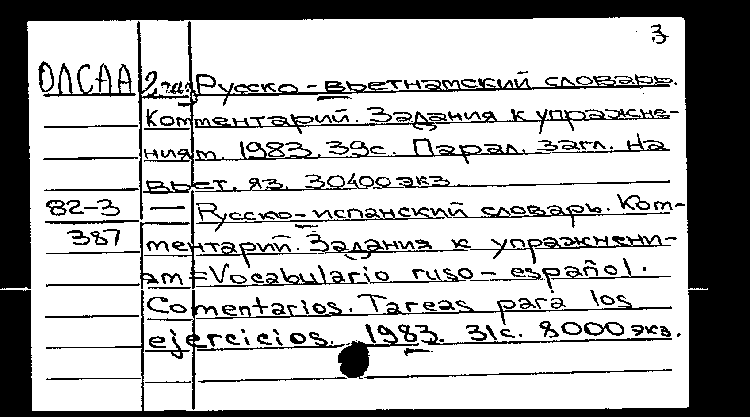 3
ОЛСАА 2, газ Русско-вьетнамский словарь.
Комментарий. Задания к упражне-
ниям. 1983. 39с. Парал. загл. на
вьет. яз. 30400 экз.
82-3 — Русско-испанский словарь. Ком-
387 ментарий. Задания к упражнени-
ям = Vocabulario ruso-español.
Comentarios. Tareas para los
ejercicios. 1983. 31с. 8000 экз.